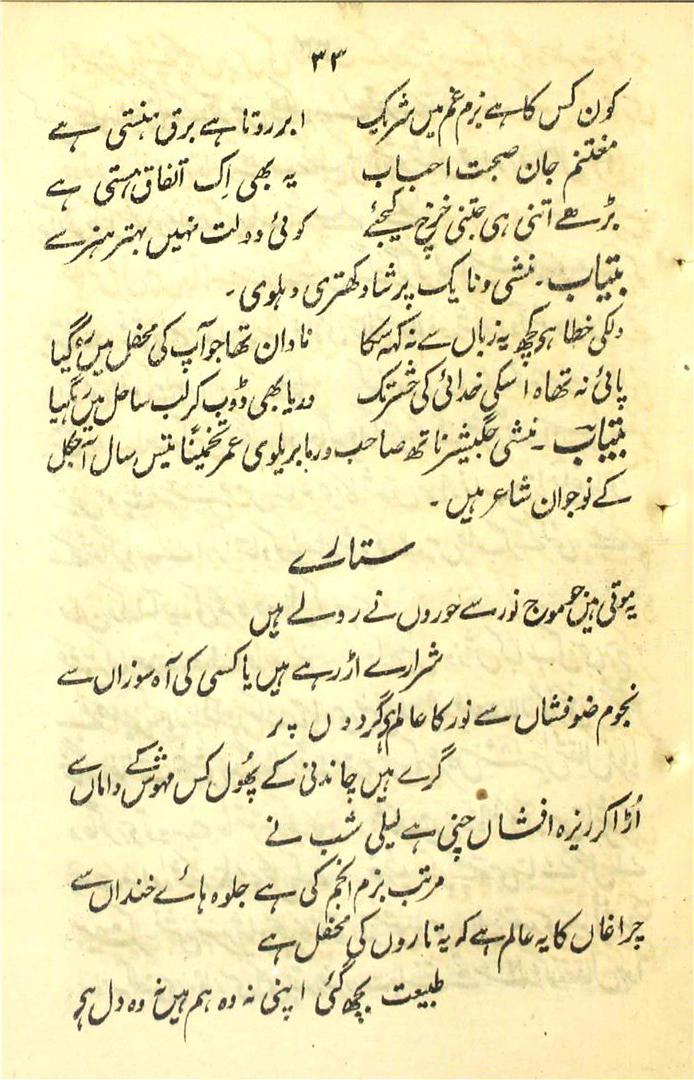 ۳۳
کون کس کا ہے بزم غم میں شریک ابر روتا ہے برق ہنستی ہے
مغتنم جان صحبت احباب یہ بھی اِک اتفاق ہستی ہے
بڑھے اتنی ہی جتنی خرچ کیجئے کوئی دولت نہیں بہتر ہنر سے
بیتاب۔ منشی ونایک پرشاد کھتری دہلوی۔
دلکی خطا ہے کچھ یہ زباں سے نہ کہہ سکا نادان تھا جو آپ کی محفل میں رہ گیا
پائی نہ تھاہ اسکی خدائی کی حشر تک دریا بھی ڈوب کر لب ساحل میں رہ گیا
بیتاب۔ منشی جگیشر ناتھ صاحب ورما بریلوی عمر تخمیناً بتیس سال آجکل
کے نوجوان شاعر ہیں۔
ستارے
یہ موتی ہیں جو موج نور سے حوروں نے رولے ہیں
شرارے اڑ رہے ہیں یا کسی کی آہ سوزاں سے
نجوم ضوفشاں سے نور کا عالم ہے گردوں پر
گرے ہیں چاندنی کے پھُول کس مہوش کے داماں سے
اُڑا کر ریزہ افشاں چنی ہے لیلی شب نے
مرتب بزم انجم کی ہے جلوہ ہائے خنداں سے
چراغاں کا یہ عالم ہے کہ یہ تاروں کی محفل ہے
طبیعت بجھ گئی اپنی نہ وہ ہم ہیں نہ وہ دل ہے